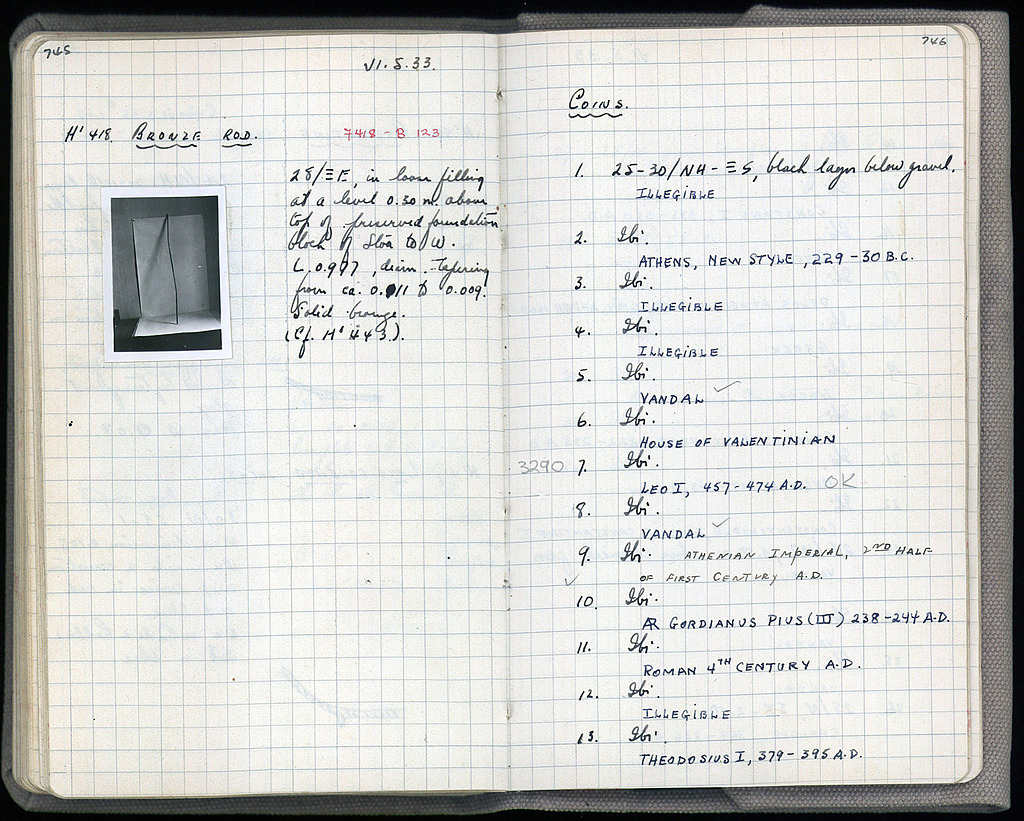 745
VI.5.33.
H' 418 BRONZE ROD.
7418 - B 123
28/ΞE, in loose filling
at a level 0.30 m. above
top of preserved foundation
block of Stoa to W.
L. 0.977, diam. Tapering
from ca. 0.011 to 0.009.
Solid bronze.
(Cf. H' 443).
746
COINS.
1. 25-30/NH - ΞS, black layer below gravel.
ILLEGIBLE
2. Ibi.
ATHENS, NEW STYLE, 229-30 B.C.
3. Ibi.
ILLEGIBLE
4. Ibi.
ILLEGIBLE
5. Ibi.
VANDAL ✓
6. Ibi.
HOUSE OF VALENTINIAN
3290 7. Ibi.
LEO I, 457-474 A.D. OK
8. Ibi.
VANDAL ✓
9. Ibi. ATHENIAN IMPERIAL, 2ND HALF
✓ OF FIRST CENTURY A.D.
10. Ibi.
AR GORDIANUS PIUS (III) 238-244 A.D.
11. Ibi.
ROMAN 4TH CENTURY A.D.
12. Ibi.
ILLEGIBLE
13. Ibi.
THEODOSIUS I, 379-395 A.D.